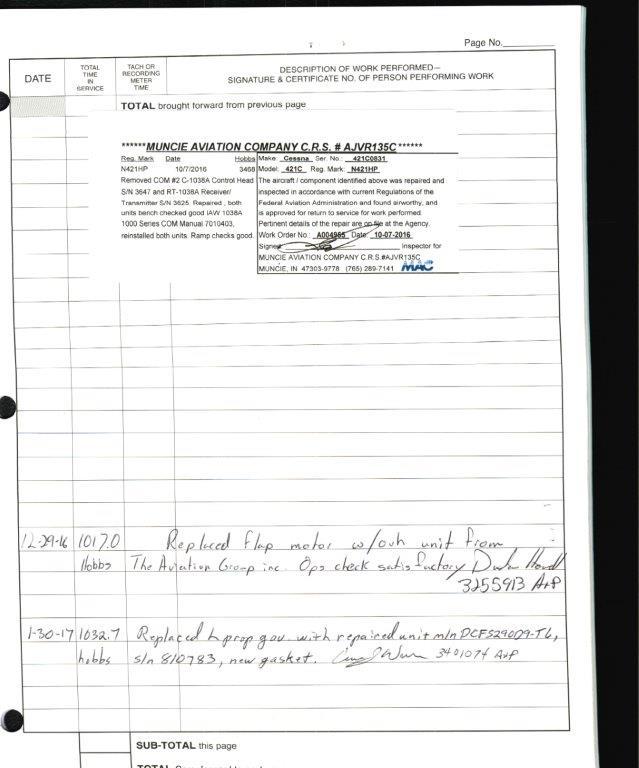 Page No.
DATE
TOTAL
TIME
IN
SERVICE
TACH OR
RECORDING
METER
TIME
DESCRIPTION OF WORK PERFORMED—
SIGNATURE & CERTIFICATE NO. OF PERSON PERFORMING WORK
TOTAL brought forward from previous page
******MUNCIE AVIATION COMPANY C.R.S. # AJVR135C******
Reg. Mark Date Hobbs
N421HP 10/7/2016 3468
Removed COM #2 C-1038A Control Head
S/N 3647 and RT-1038A Receiver/
Transmitter S/N 3625. Repaired , both
units bench checked good IAW 1038A
1000 Series COM Manual 7010403,
reinstalled both units. Ramp checks good.
Make: Cessna Ser. No.: 421C0831
Model: 421C Reg. Mark: N421HP
The aircraft / component identified above was repaired and
inspected in accordance with current Regulations of the
Federal Aviation Administration and found airworthy, and
is approved for return to service for work performed.
Pertinent details of the repair are on file at the Agency.
Work Order No.: A004955 Date: 10-07-2016
Signed Inspector for
MUNCIE AVIATION COMPANY C.R.S.#AJVR135C
MUNCIE, IN 47303-9778 (765) 289-7141 MAC
12-29-16 1017.0 Replaced flap motor w/ovh unit from
Hobbs The Aviation Group inc. Ops check satisfactory
3255913 A+P
1-30-17 1032.7 Replaced L prop gov. with repaired unit m/n DCFS290D9-T6,
hobbs s/n 810783, new gasket. 3401074 A+P
SUB-TOTAL this page